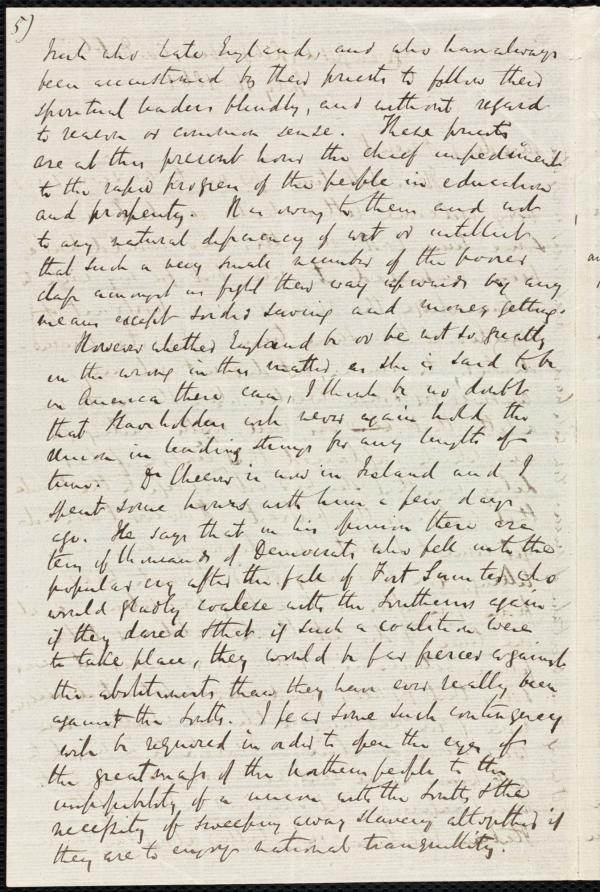 5)
Irish who hate England, and who have always
been accustomed by their priests to follow their
spiritual leaders blindly, and without regard
to reason or common sense. These priests
are at this present hour the chief impediment
to the rapid progress of the people in education
and prosperity. It is owing to them and not
to any natural deficiency of wit or intellect
that such a very small number of the poorer
class amongst us fight their way upwards by any
means except sordid saving and money getting.
However whether England be or be not so greatly
in the wrong in this matter as she is said to be
in America there can, I think be no doubt
that slaveholders will never again hold the
Union in leading strings for any length of
time. Dr Cheever is now in Ireland and I
spent some hours with him a few days
ago. He says that in his opinion there are
tens of thousands of Democrats who fell into the
popular cry after the fall of Fort Sumter, who
would gladly coalesce with the Southerners again
if they dared & that if such a coalition were
to take place, they would be far fiercer against
the abolitionists than they have ever really been
against the South. I fear some such contingency
will be required in order to open the eyes of
the great mass of the Northern people to the
impossibility of a union with the South & the
necessity of sweeping away slavery altogether if
they are to enjoy national tranquillity.